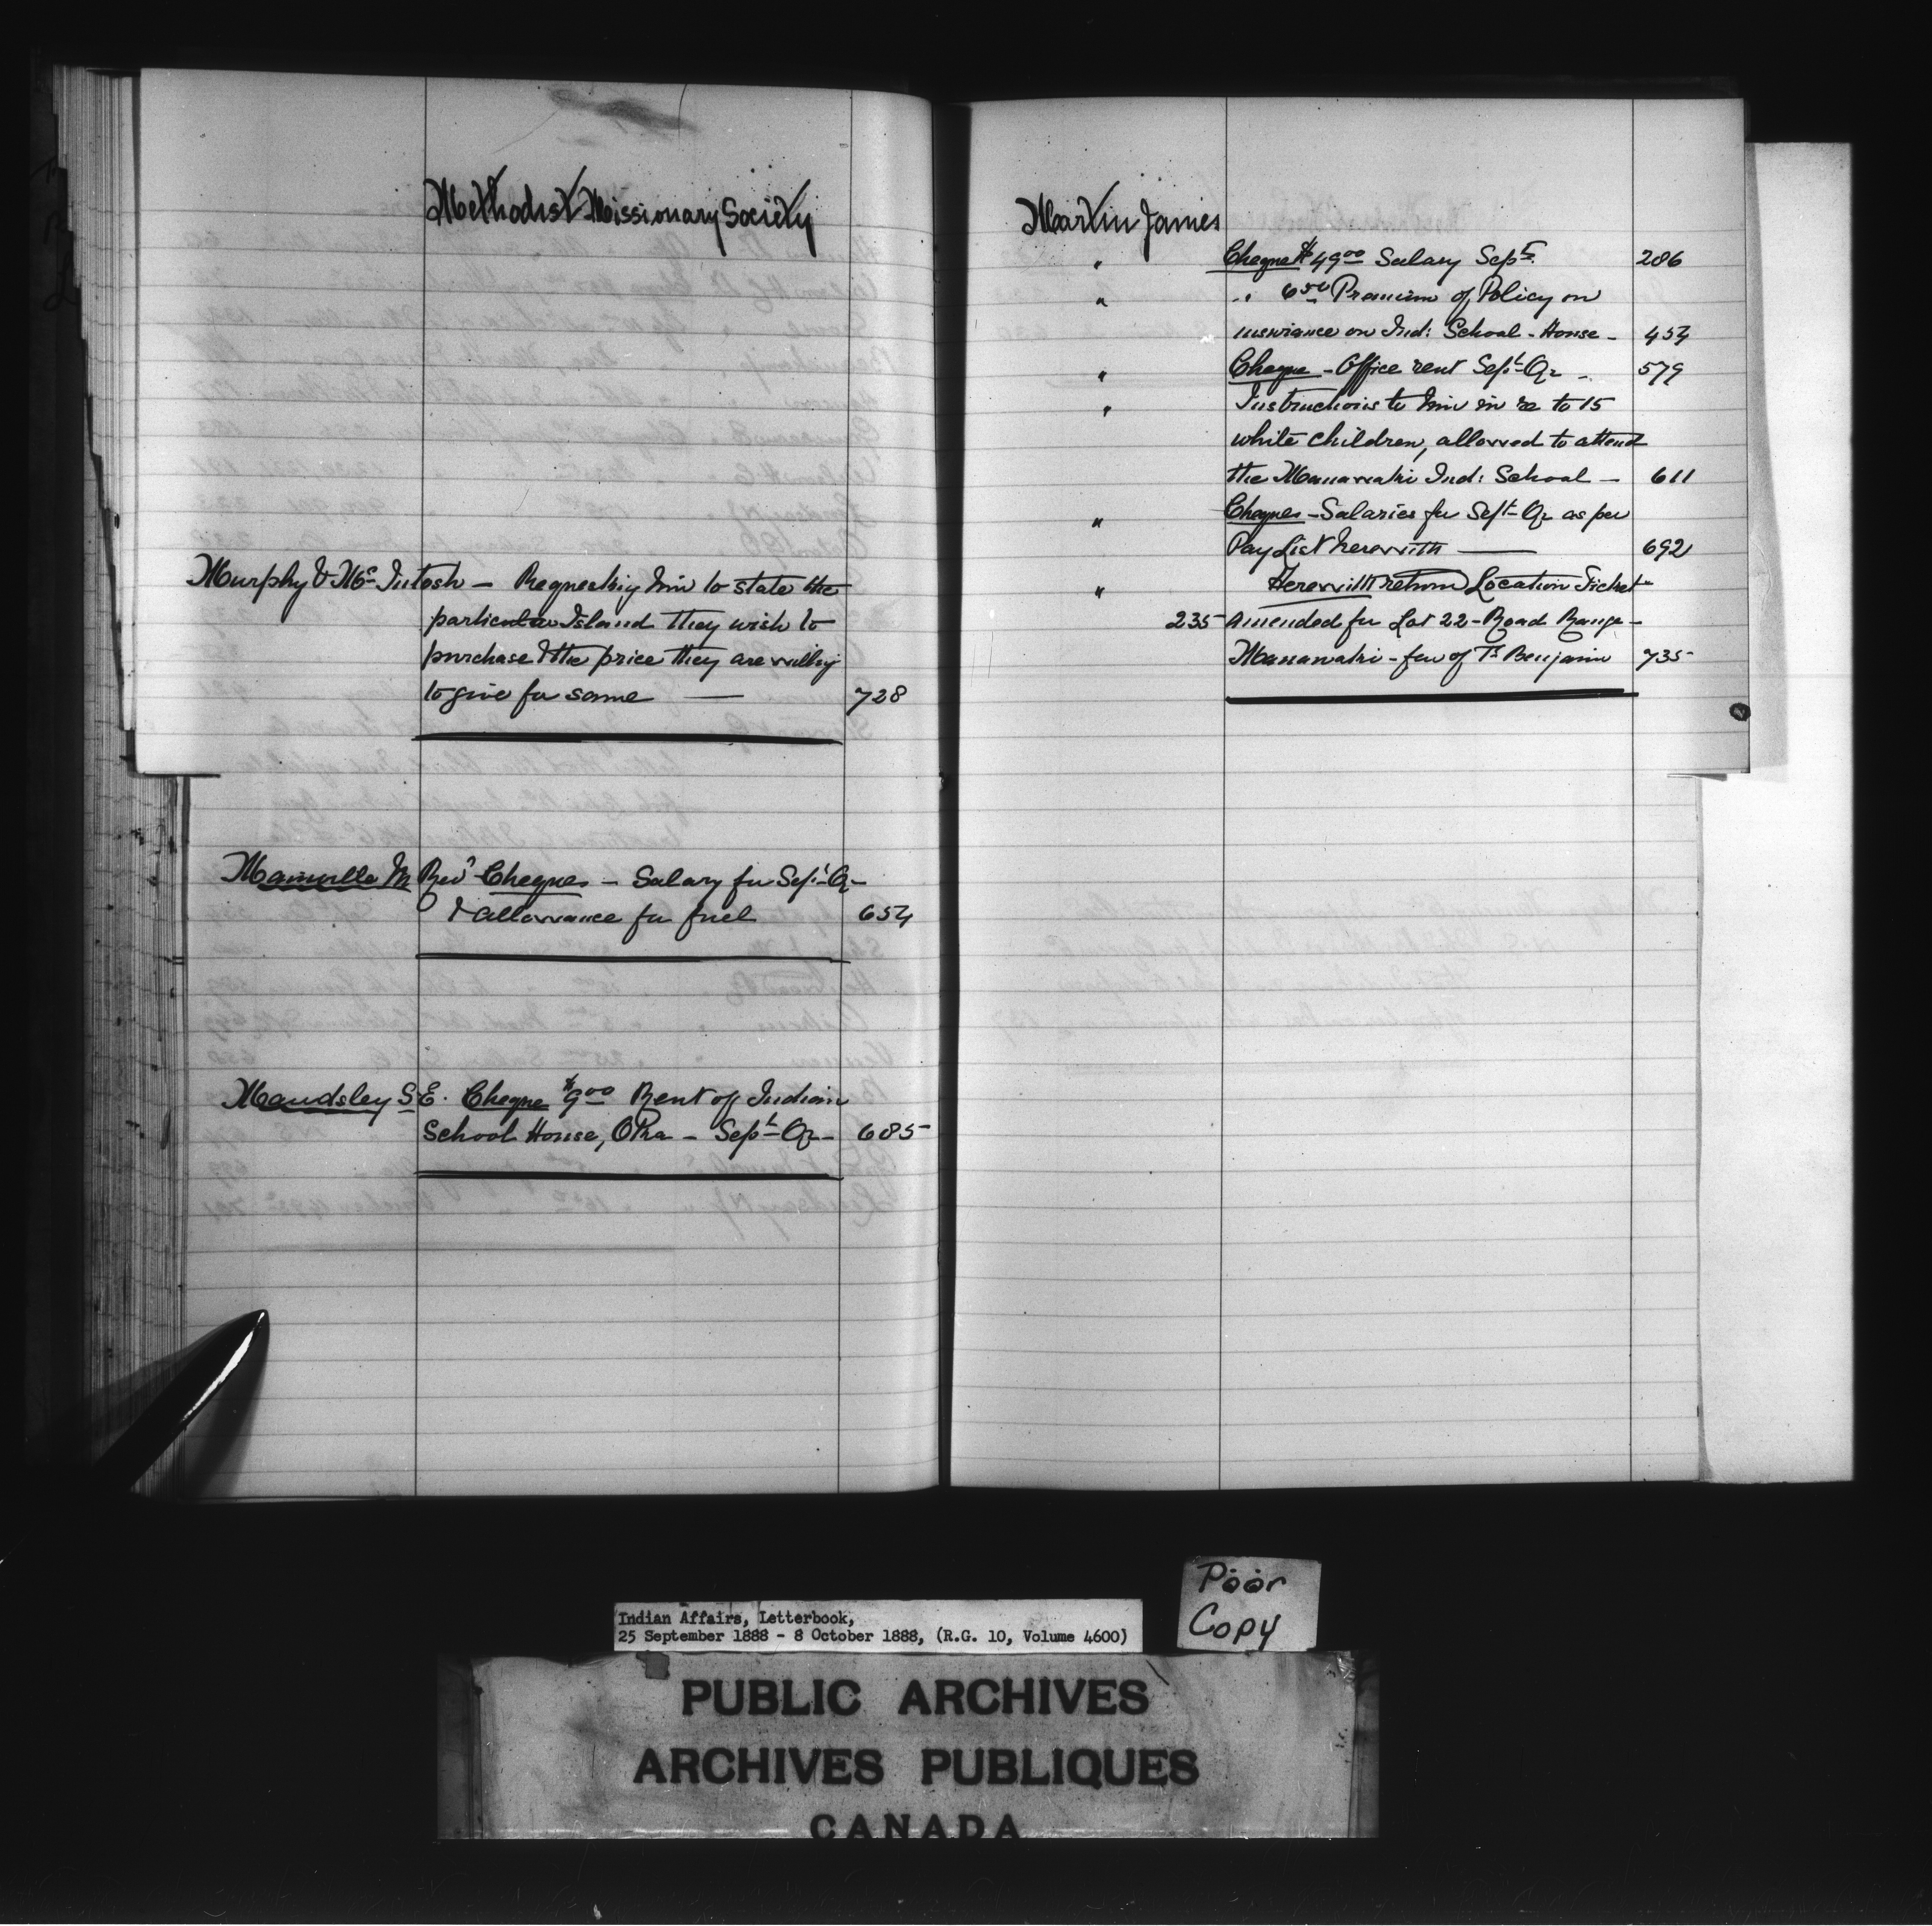 Methodist Missionary Society
Murphy & McIntosh — Requesting him to state the
particular Island they wish to
purchase & the price they are willing
to give for same — 728
Rev'd Cheques — Salary for Sept Qr —
& allowance for fuel 654
Maudsley S.E. Cheque $9.00 Rent of Indian
School House, Oka — Sept Qr — 685
Martin James
" Cheque $49.00 Salary Sept. 286
" " 6.50 Premium of Policy on
insurance on Ind: School-House — 454
" Cheque — Office rent Sept Qr — 579
" Instructions to him in re to 15
white children, allowed to attend
the Manawaki Ind: School — 611
" Cheques — Salaries for Sept Qr as per
Pay List herewith — 692
" Herewith return Location Ticket
235 amended for Lot 22 — Road Range —
Manawaki — fav of Benjamin 735
Indian Affairs, Letterbook,
25 September 1888 - 8 October 1888, (R.G. 10, Volume 4600)
Poor
Copy
PUBLIC ARCHIVES
ARCHIVES PUBLIQUES
CANADA